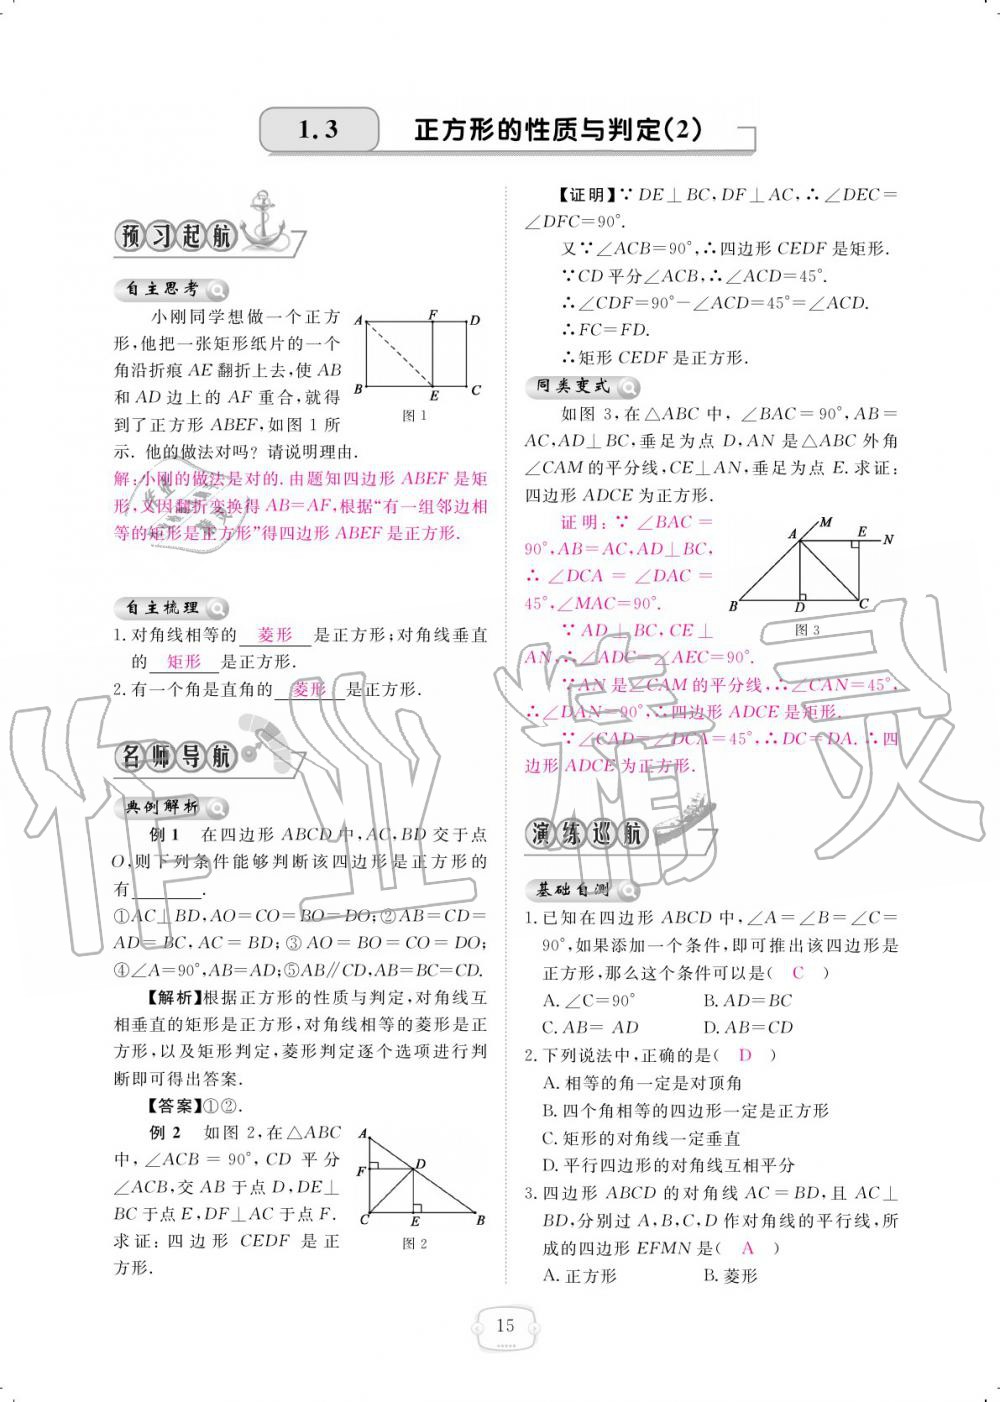 1.3 正方形的性质与判定(2)
预习起航
自主思考
小刚同学想做一个正方
形,他把一张矩形纸片的一个
角沿折痕 AE 翻折上去,使 AB
和 AD 边上的 AF 重合,就得
到了正方形 ABEF,如图 1 所
示. 他的做法对吗? 请说明理由.
A F D
B E C
图 1
解:小刚的做法是对的.由题知四边形 ABEF 是矩
形,又因翻折变换得 AB=AF,根据“有一组邻边相
等的矩形是正方形”得四边形 ABEF 是正方形.
自主梳理
1. 对角线相等的 菱形 是正方形;对角线垂直
的 矩形 是正方形.
2. 有一个角是直角的 菱形 是正方形.
名师导航
典例解析
例 1 在四边形 ABCD 中,AC,BD 交于点
O,则下列条件能够判断该四边形是正方形的
有________.
①AC⊥BD,AO=CO=BO=DO;②AB=CD=
AD=BC,AC=BD;③AO=BO=CO=DO;
④∠A=90°,AB=AD;⑤AB∥CD,AB=BC=CD.
【解析】根据正方形的性质与判定,对角线互
相垂直的矩形是正方形,对角线相等的菱形是正
方形,以及矩形判定,菱形判定逐个选项进行判
断即可得出答案.
【答案】①②.
例 2 如图 2,在△ABC
中,∠ACB=90°,CD 平分
∠ACB,交 AB 于点 D,DE⊥
BC 于点 E,DF⊥AC 于点 F.
求证:四边形 CEDF 是正
方形.
A
F D
C E B
图 2
【证明】∵DE⊥BC,DF⊥AC,∴∠DEC=
∠DFC=90°.
又∵∠ACB=90°,∴四边形 CEDF 是矩形.
∵CD 平分∠ACB,∴∠ACD=45°.
∴∠CDF=90°-∠ACD=45°=∠ACD.
∴FC=FD.
∴矩形 CEDF 是正方形.
同类变式
如图 3,在△ABC 中,∠BAC=90°,AB=
AC,AD⊥BC,垂足为点 D,AN 是△ABC 外角
∠CAM 的平分线,CE⊥AN,垂足为点 E.求证:
四边形 ADCE 为正方形.
证明:∵∠BAC=
90°,AB=AC,AD⊥BC,
∴∠DCA=∠DAC=
45°,∠MAC=90°.
∵AD⊥BC,CE⊥
AN,∴∠ADC=∠AEC=90°.
M
A E N
B D C
图 3
∵AN 是∠CAM 的平分线,∴∠CAN=45°,
∴∠DAN=90°,∴四边形 ADCE 是矩形.
∵∠CAD=∠DCA=45°,∴DC=DA.∴四
边形 ADCE 为正方形.
演练巡航
基础自测
1. 已知在四边形 ABCD 中,∠A=∠B=∠C=
90°,如果添加一个条件,即可推出该四边形是
正方形,那么这个条件可以是( C )
A. ∠C=90° B. AD=BC
C. AB=AD D. AB=CD
2. 下列说法中,正确的是( D )
A. 相等的角一定是对顶角
B. 四个角相等的四边形一定是正方形
C. 矩形的对角线一定垂直
D. 平行四边形的对角线互相平分
3. 四边形 ABCD 的对角线 AC=BD,且 AC⊥
BD,分别过 A,B,C,D 作对角线的平行线,所
成的四边形 EFMN 是( A )
A. 正方形 B. 菱形
15
作业精灵